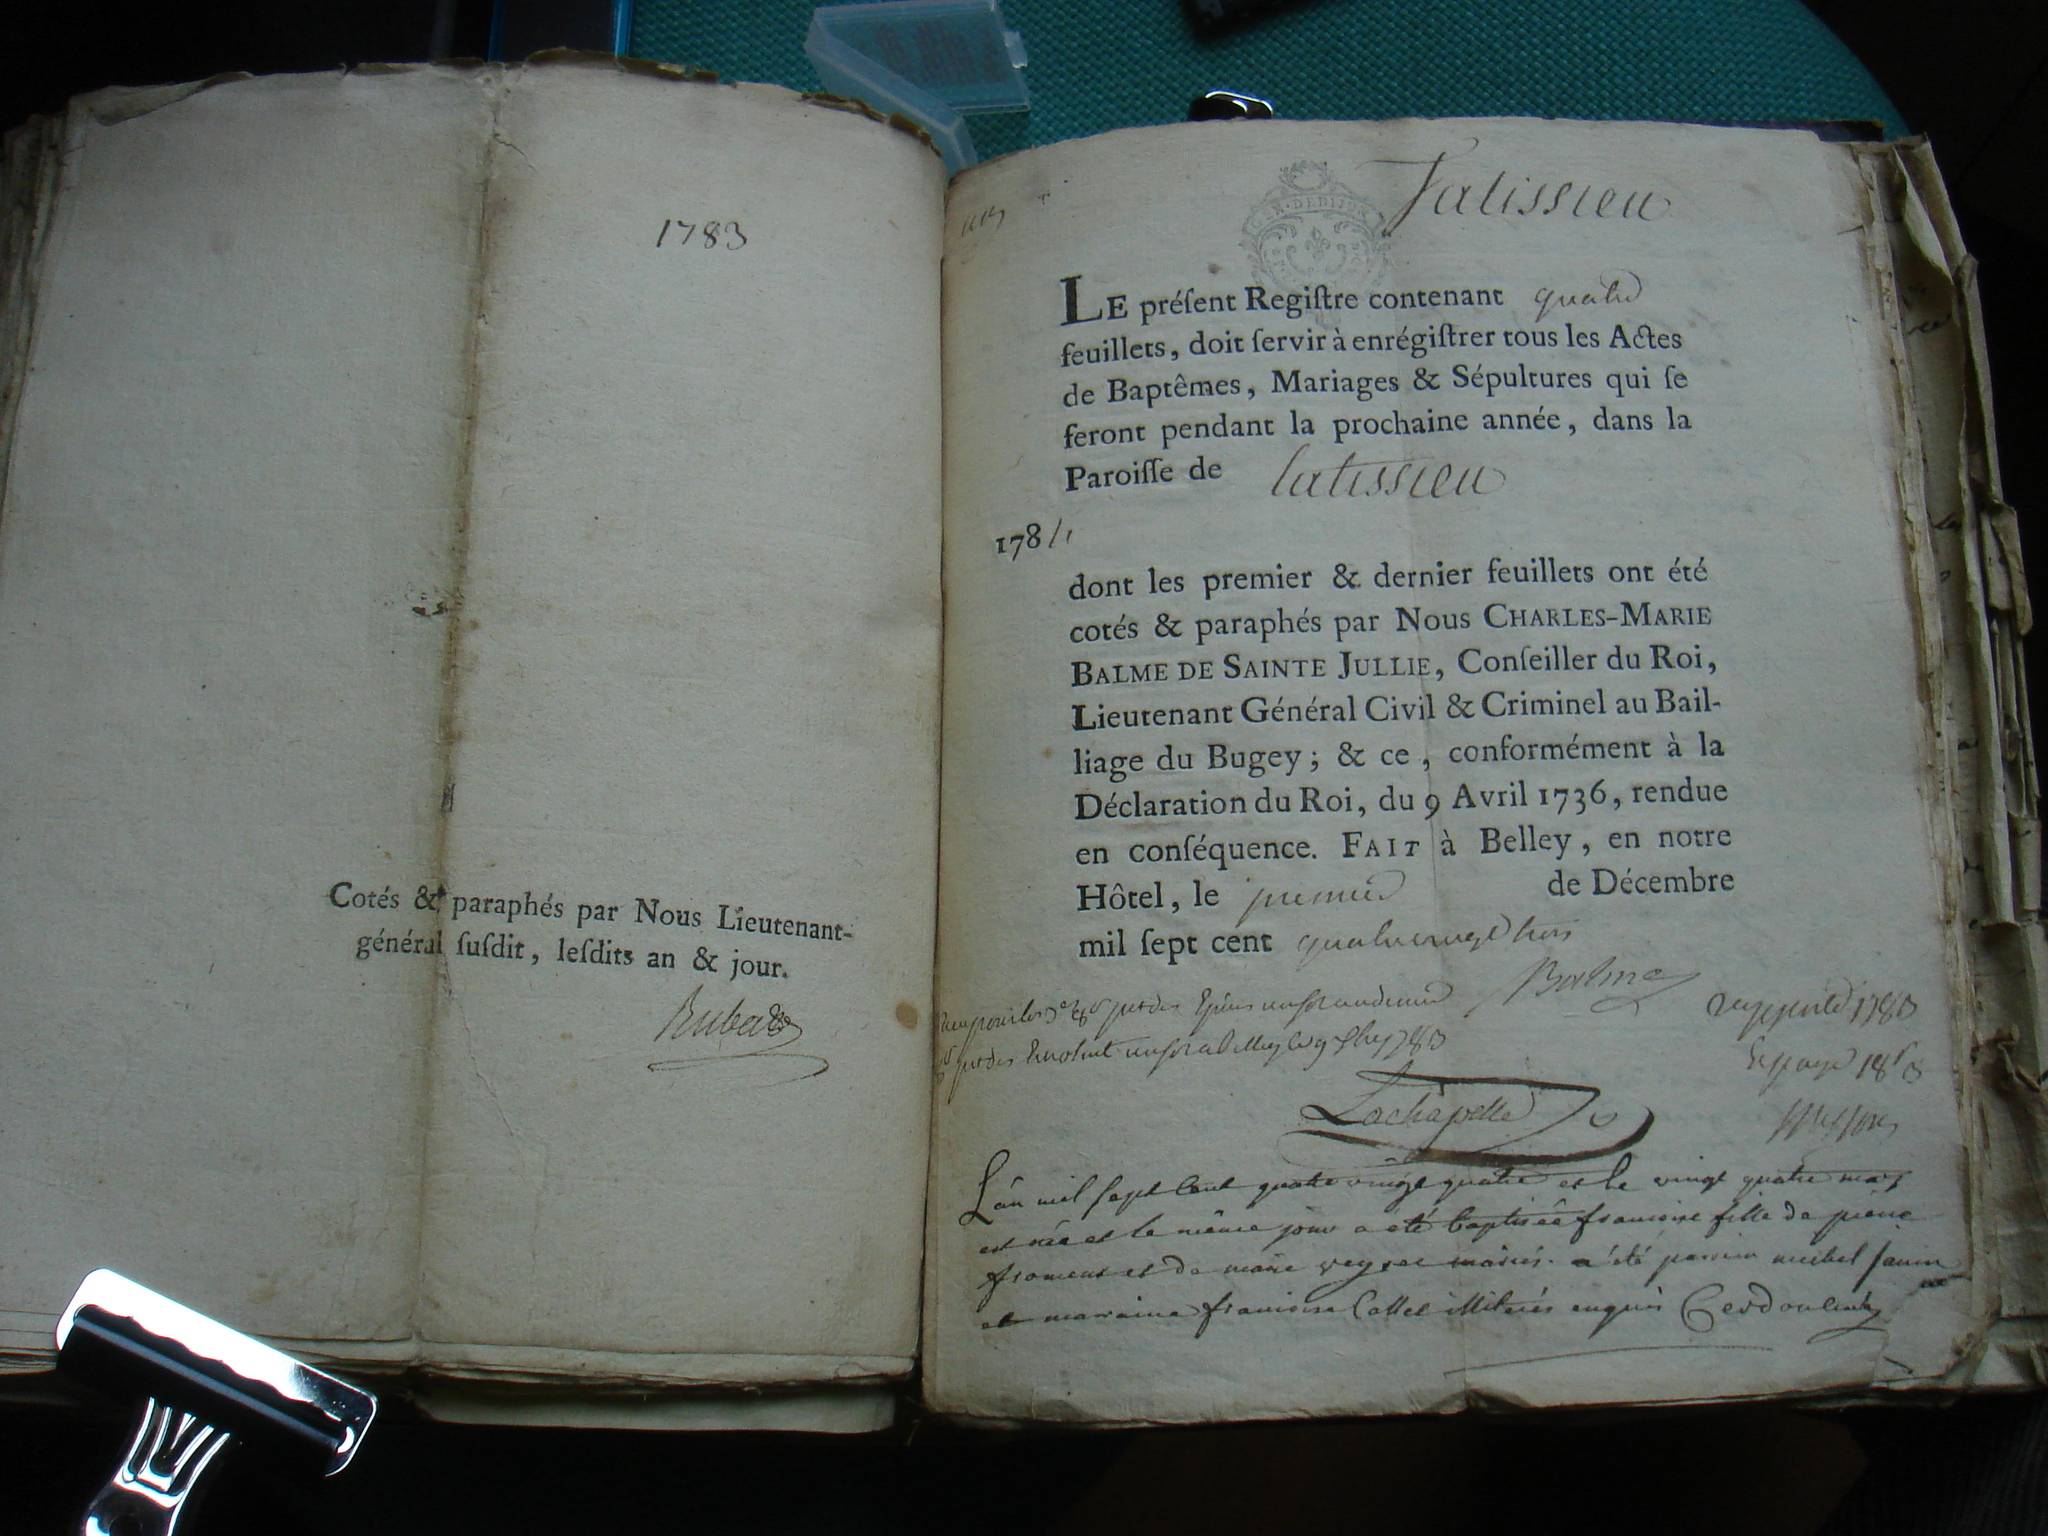 1783
Cotés & paraphés par Nous Lieutenant-
général ſuſdit, leſdits an & jour.
Tatissieu
LE préſent Regiſtre contenant quatre
feuillets, doit ſervir à enrégiſtrer tous les Actes
de Baptêmes, Mariages & Sépultures qui ſe
feront pendant la prochaine année, dans la
Paroiſſe de tatissieu
178
dont les premier & dernier feuillets ont été
cotés & paraphés par Nous CHARLES-MARIE
BALME DE SAINTE JULLIE, Conſeiller du Roi,
Lieutenant Général Civil & Criminel au Bail-
liage du Bugey ; & ce , conformément à la
Déclaration du Roi, du 9 Avril 1736, rendue
en conſéquence. FAIT à Belley, en notre
Hôtel, le premier de Décembre
mil ſept cent quatre vingt trois
Balme
1783
Lachapelle
L'an mil sept cent quatre vingt quatre et le vingt quatre mars
est née et le même jour a été baptisée francoise fille de pierre
froment et de marie mariés. a été parrain michel janin
et marraine francoise Callet illiterés enquis